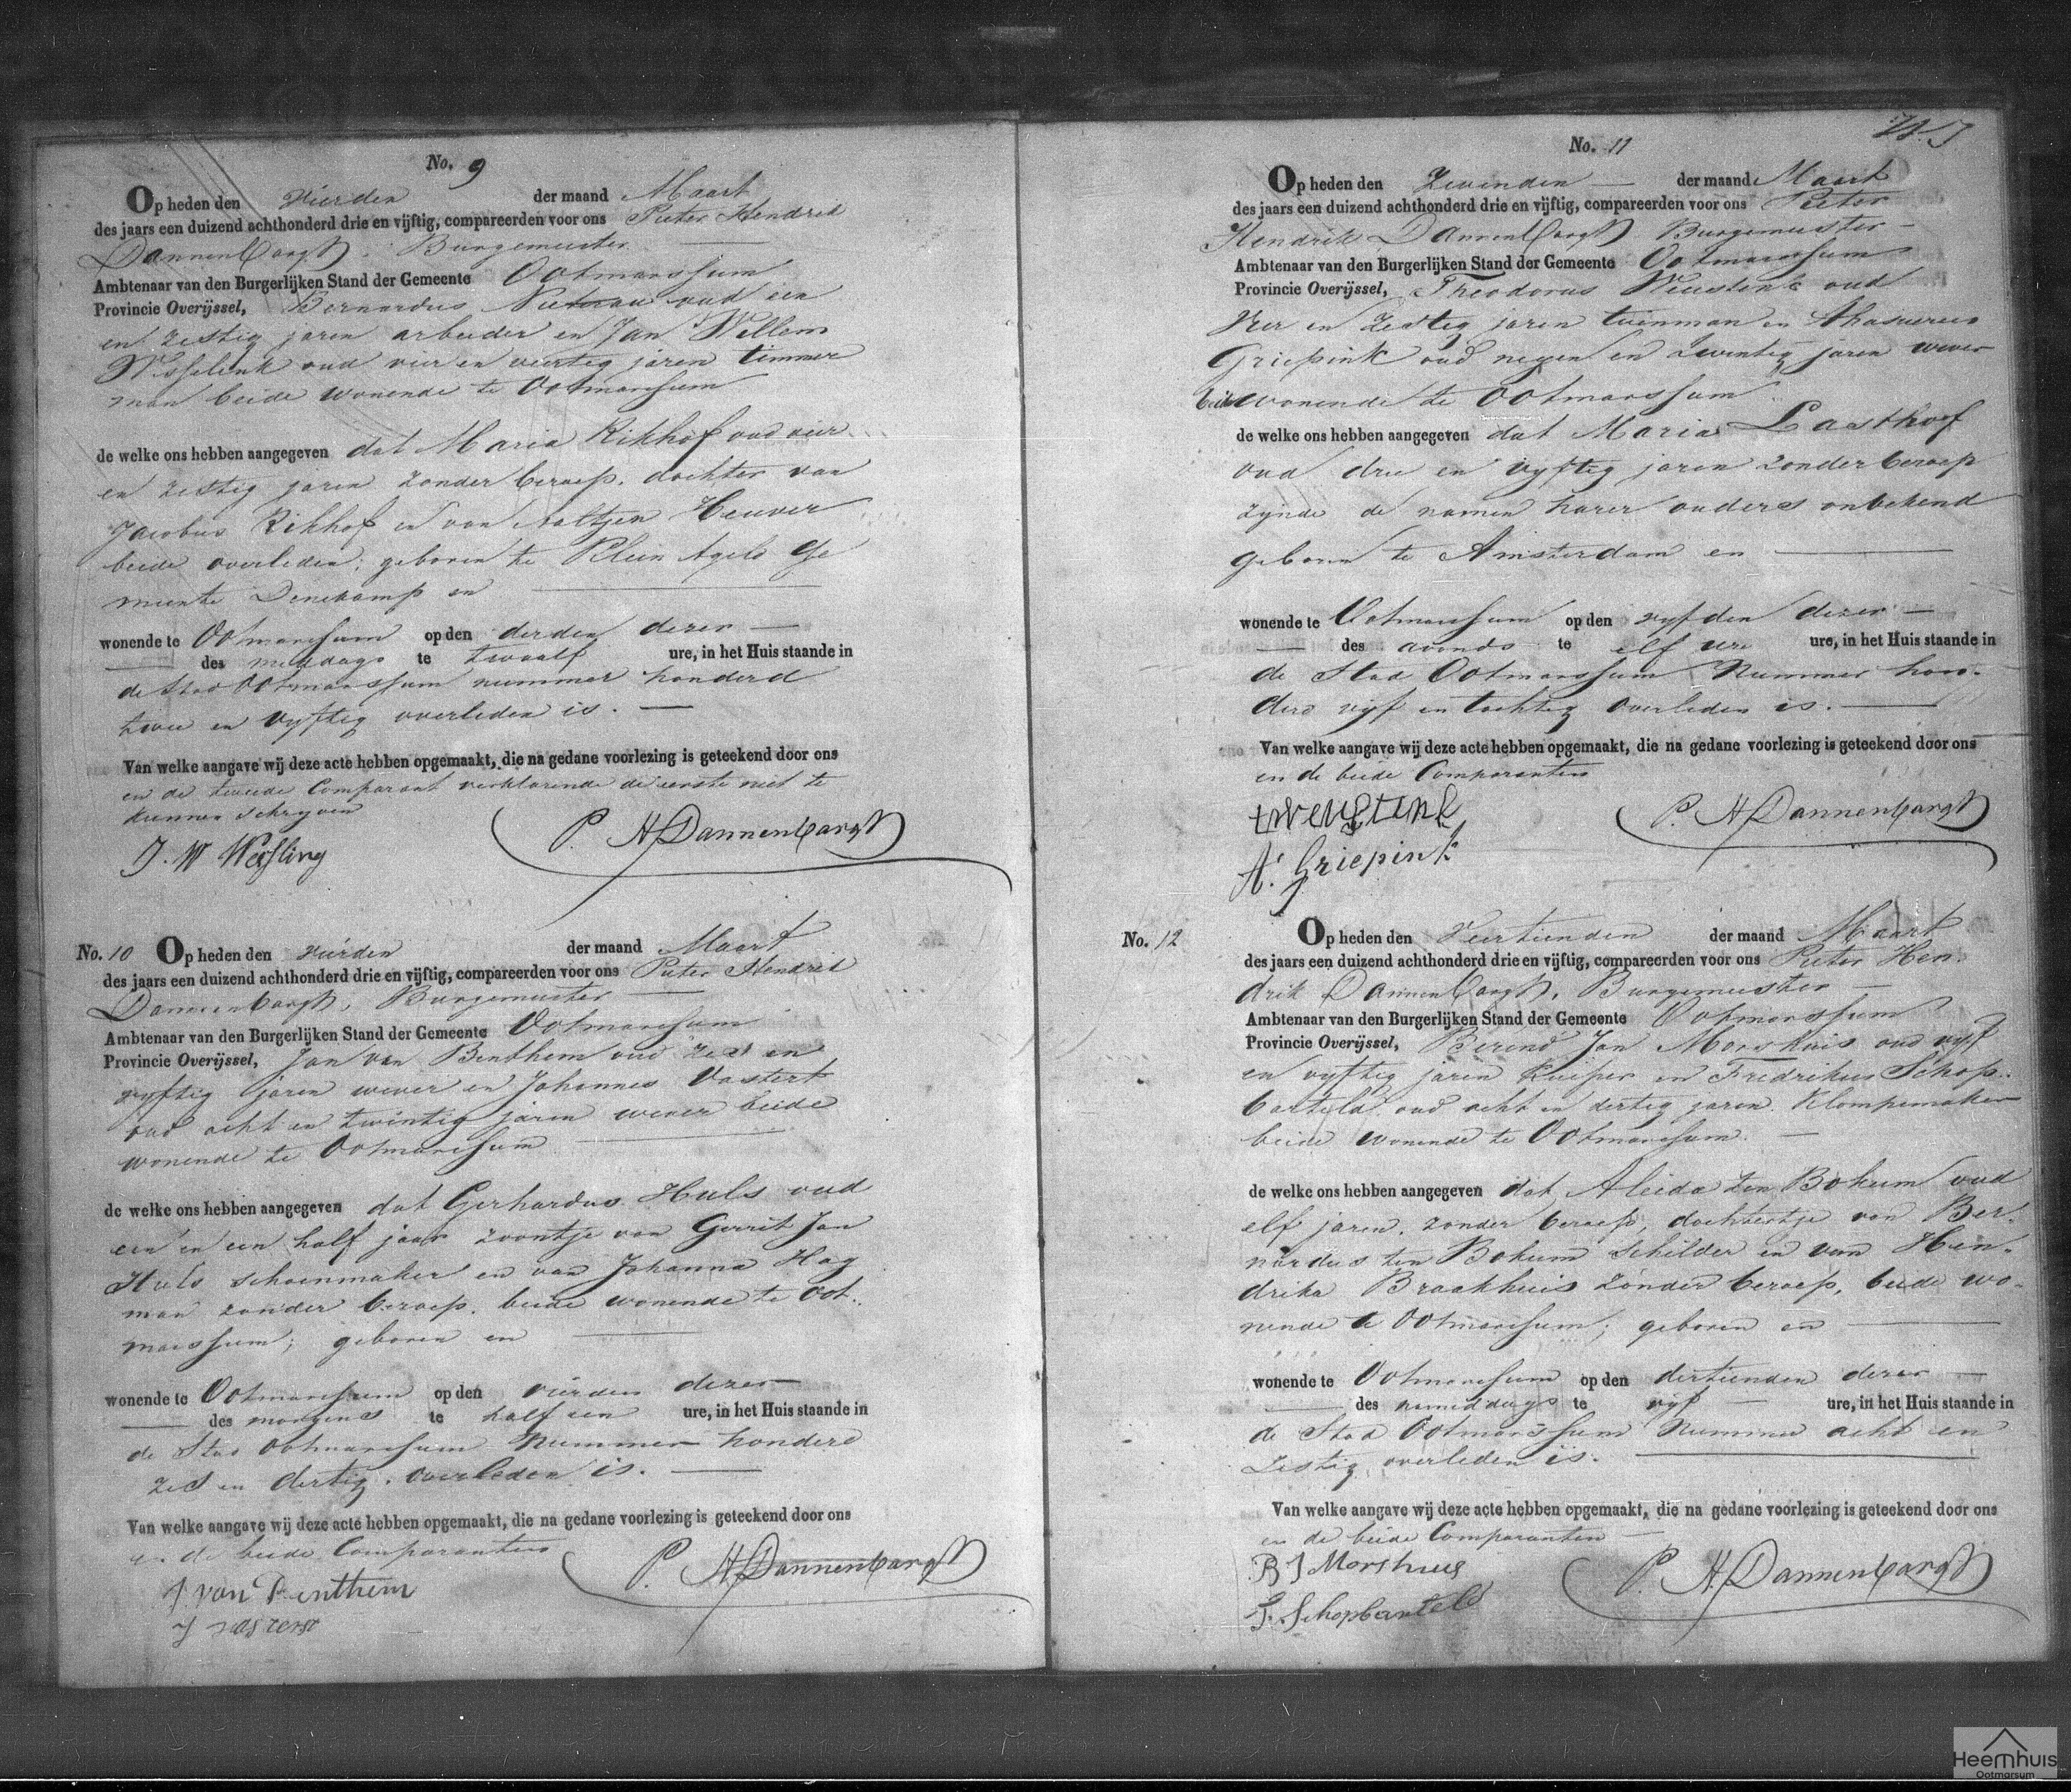 No. 9
Op heden den vierden der maand Maart
des jaars een duizend achthonderd drie en vijftig, compareerden voor ons Pieter Hendrik
Dannenbargh, Burgemeester
Ambtenaar van den Burgerlijken Stand der Gemeente Ootmarssum
Provincie Overijssel, Bernardus oud een
en zestig jaren arbeider en Jan Willem
Wesselink oud vier en veertig jaren timmer
man beide wonende te Ootmarssum
de welke ons hebben aangegeven dat Maria Rikhof oud vier
en zestig jaren zonder beroep, dochter van
Jacobus Rikhof en van Aaltjen Heuver
beide overleden, geboren te Klein Agelo Ge
meente Denekamp en
wonende te Ootmarssum op den derden dezer
des middags te twaalf ure, in het Huis staande in
de Stad Ootmarssum nummer honderd
twee en vyftig overleden is.
Van welke aangave wij deze acte hebben opgemaakt, die na gedane voorlezing is geteekend door ons
en de tweede Comparant verklarende de eerste niet te
kunnen schryven
J. W Wesling P. H Dannenbargh
No. 10 Op heden den vierden der maand Maart
des jaars een duizend achthonderd drie en vijftig, compareerden voor ons Pieter Hendrik
Dannenbargh, Burgemeester
Ambtenaar van den Burgerlijken Stand der Gemeente Ootmarssum
Provincie Overijssel, Jan van Benthem oud zes en
vyftig jaren wever en Johannes Vastert
oud acht en twintig jaren wever beide
wonende te Ootmarssum
de welke ons hebben aangegeven dat Gerhardus Huls oud
een en een half jaar zoontje van Gerrit Jan
Huls schoenmaker en van Johanna Hag
man zonder beroep, beide wonende te Oot.
marssum; geboren en
wonende te Ootmarssum op den vierden dezer
des morgens te half een ure, in het Huis staande in
de Stad Ootmarssum Nummer honderd
zes en dertig, overleden is.
Van welke aangave wij deze acte hebben opgemaakt, die na gedane voorlezing is geteekend door ons
en de beide Comparanten
J. van Benthem P. H Dannenbargh
J Vastert
No. 11
Op heden den Zevenden der maand Maart
des jaars een duizend achthonderd drie en vijftig, compareerden voor ons Pieter
Hendrik Dannenbargh Burgemeester
Ambtenaar van den Burgerlijken Stand der Gemeente Ootmarssum
Provincie Overijssel, Theodorus Weustink oud
Vier en Zestig jaren tuinman en Ahasuerus
Griepink oud negen en twintig jaren wever
beide wonende te Ootmarssum
de welke ons hebben aangegeven dat Maria Lasthof
oud drie en vyftig jaren zonder beroep
zynde de namen harer ouders onbekend
geboren te Amsterdam en
wonende te Ootmarssum op den vyfden dezer
des avonds te elf ure ure, in het Huis staande in
de Stad Ootmarssum Nummer hon-
derd vyf en tachtig overleden is.
Van welke aangave wij deze acte hebben opgemaakt, die na gedane voorlezing is geteekend door ons
en de beide Comparanten
P. H Dannenbargh
A. Griepink
No. 12 Op heden den Veertienden der maand Maart
des jaars een duizend achthonderd drie en vijftig, compareerden voor ons Pieter Hen-
drik Dannenbargh, Burgemeester
Ambtenaar van den Burgerlijken Stand der Gemeente Ootmarssum
Provincie Overijssel, Berend Jan Morshuis oud vyf
en vyftig jaren Kuiper en Fredrikus Schop-
barteld oud acht en dertig jaren Klompemaker
beide wonende te Ootmarssum.
de welke ons hebben aangegeven dat Aleida ten Bokum oud
elf jaren, zonder beroep, dochtertje van Ber-
nardus ten Bokum Schilder en van Hen-
drika Braakhuis zonder beroep, beide wo-
nende te Ootmarssum; geboren en
wonende te Ootmarssum op den dertienden dezer
des namiddags te vyf ure, in het Huis staande in
de Stad Ootmarssum Nummer acht en
Zestig overleden is.
Van welke aangave wij deze acte hebben opgemaakt, die na gedane voorlezing is geteekend door ons
en de beide Comparanten
B J Morshuis P. H. Dannenbargh
F. Schopbarteld
Heemhuis
Ootmarsum